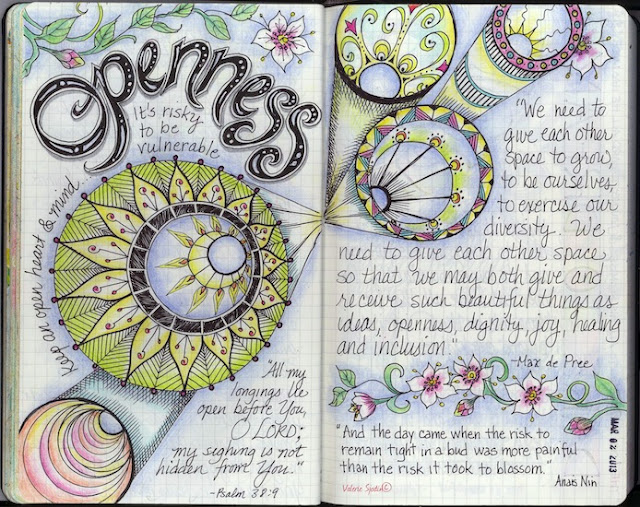 Openness
It's risky
to be
vulnerable
Keep an open heart & mind
"All my
longings lie
open before You,
O LORD;
my sighing is not
hidden from You."
-Psalm 38:9
"We need to
give each other
space to grow,
to be ourselves,
to exercise our
diversity. We
need to give each other space
so that we may both give and
receive such beautiful things as
ideas, openness, dignity, joy, healing
and inclusion."
-Max de Pree
"And the day came when the risk to
remain tight in a bud was more painful
than the risk it took to blossom."
Anaïs Nin
Valerie Sjodin©
MAR 02 2013